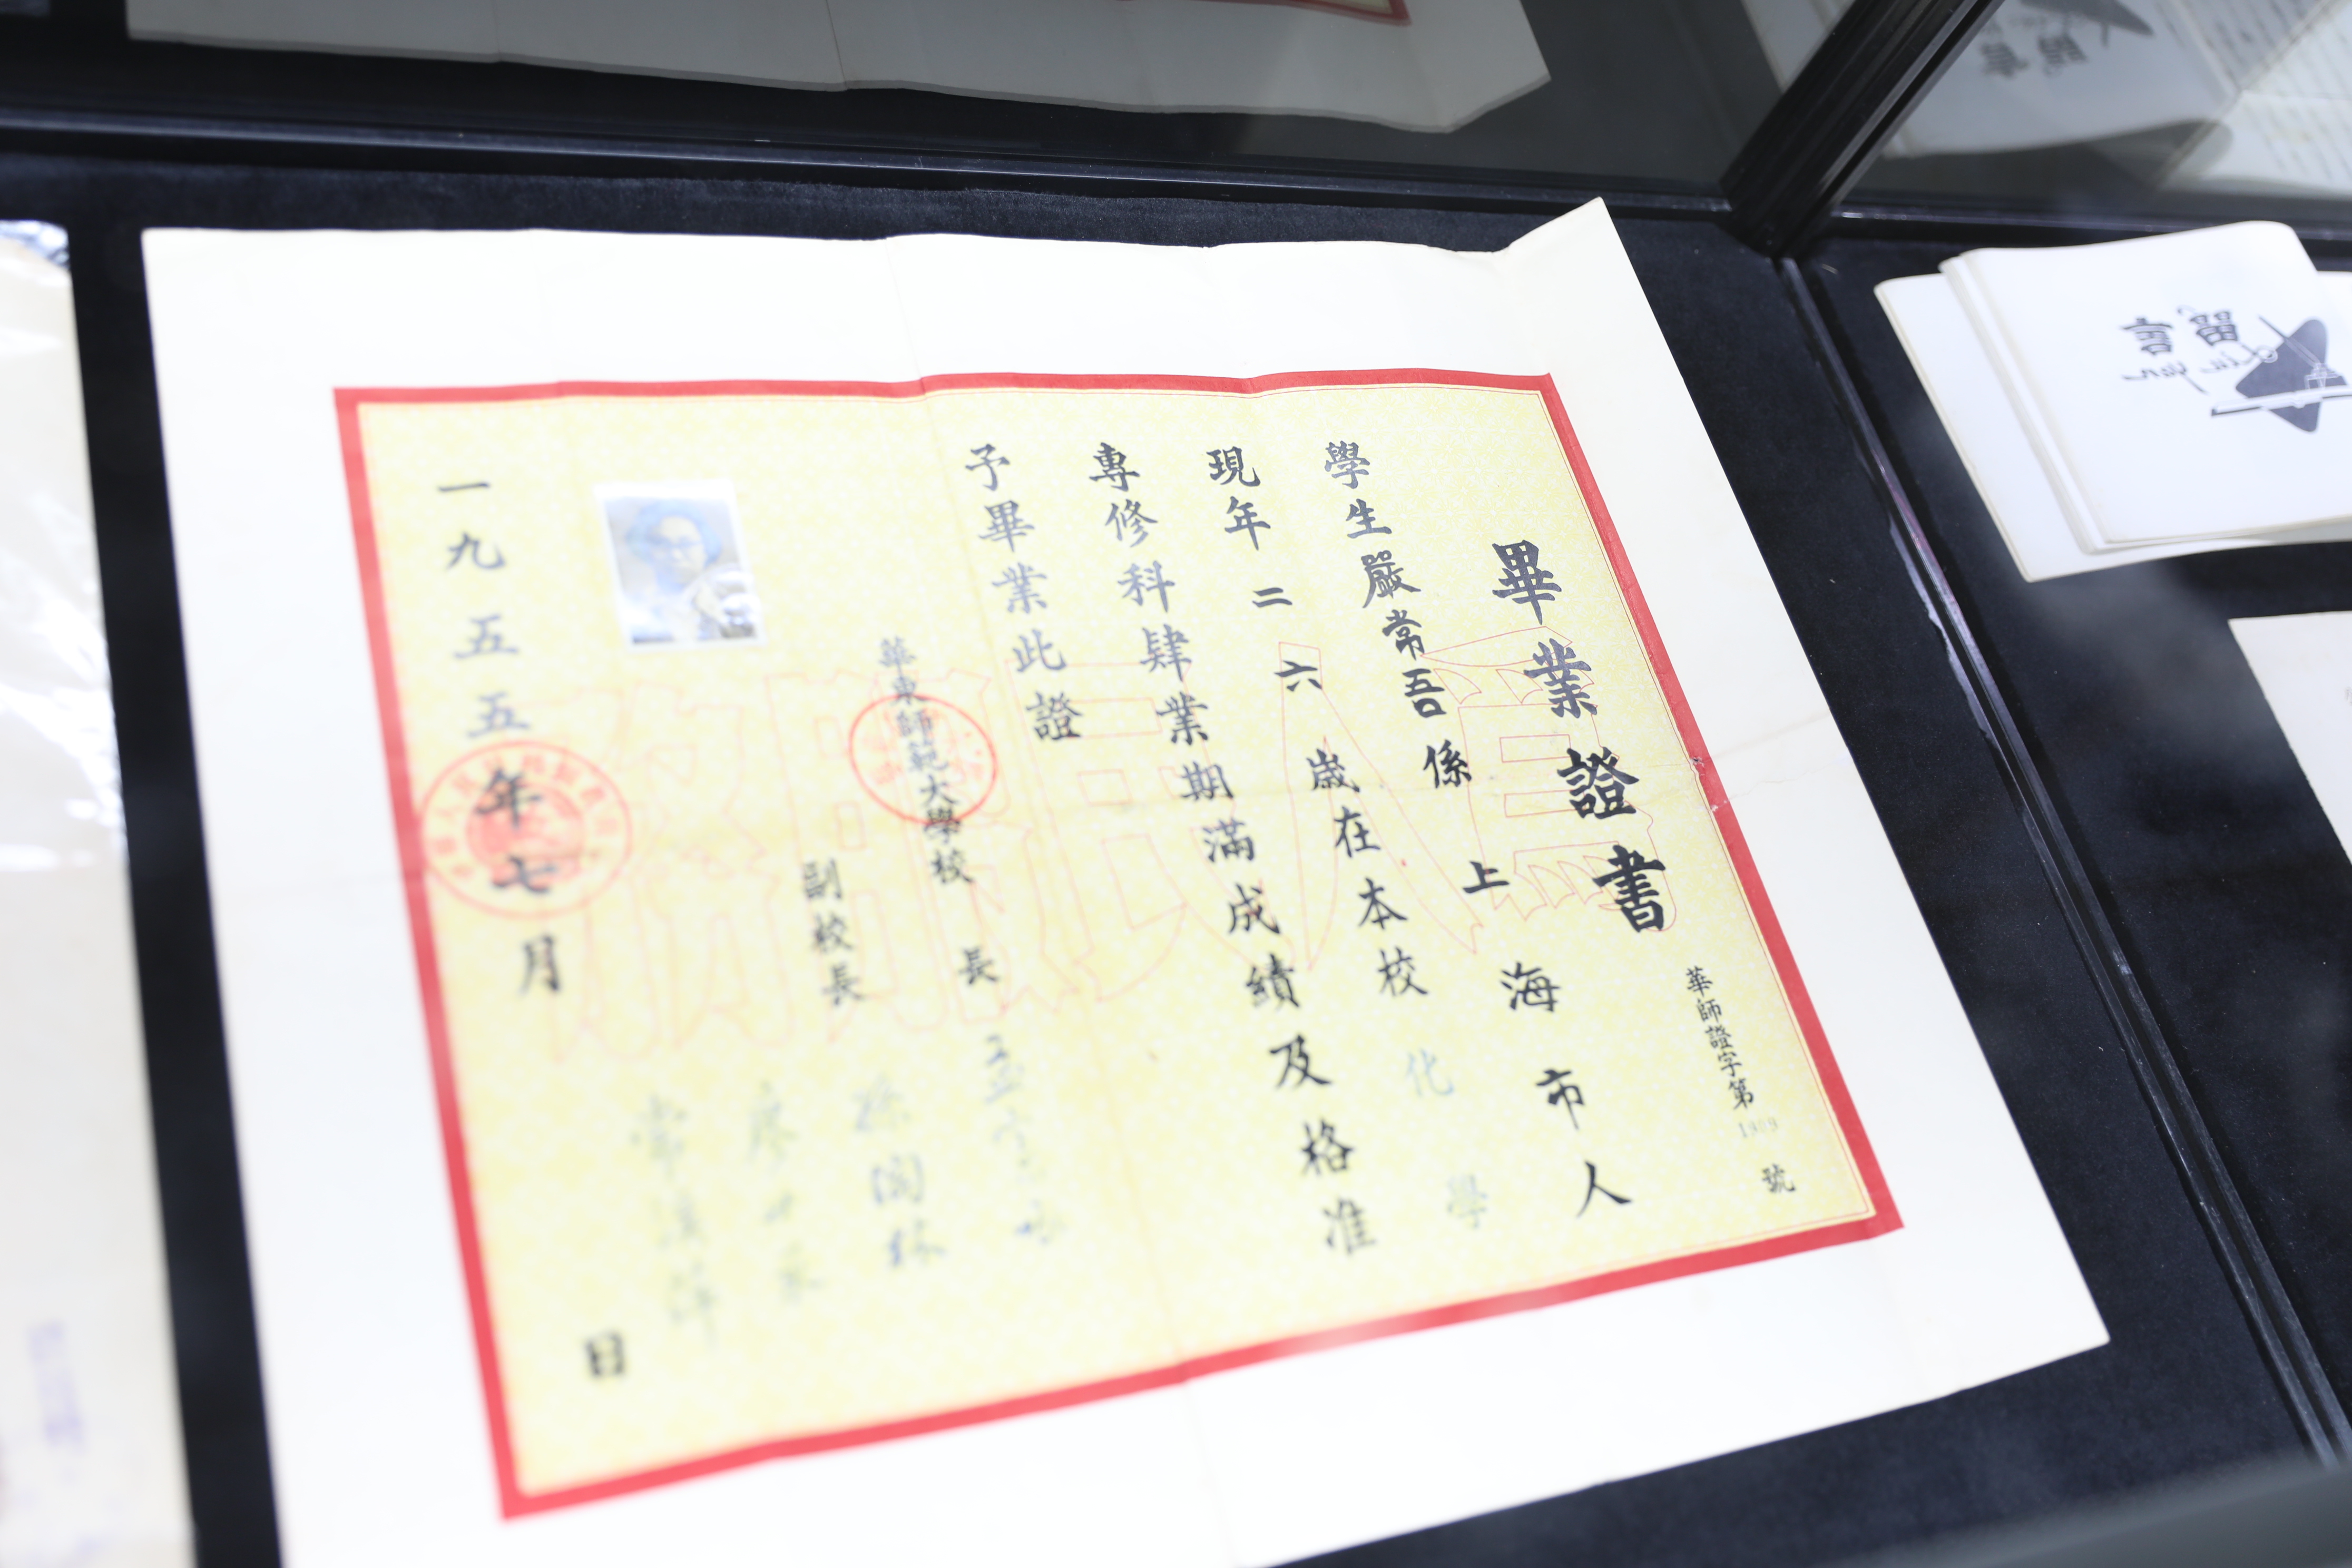 畢業證書
華師證字第 號
學生嚴常吾係上海市人
現年二六歲在本校化學
專修科肄業期滿成績及格准
予畢業此證
華東師範大學校長 孟憲承
副校長 孫陶林
廖世承
常溪萍
一九五五年七月 日
為人民服務
留言